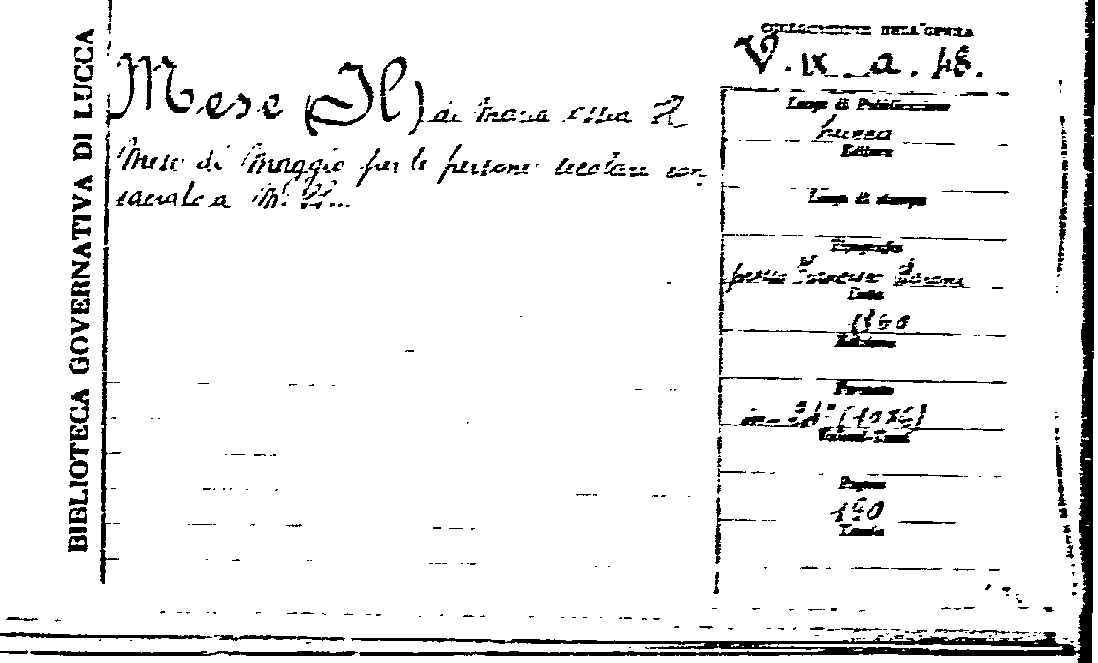 BIBLIOTECA GOVERNATIVA DI LUCCA
Mese (Il) di Maria ossia Il
Mese di Maggio per le persone secolari con
sacrato a M.
COLLOCAZIONE DELL'OPERA
V. IX. a. 48.
Luogo di Pubblicazione
Lucca
Editore
Luogo di stampa
Tipografia
presso Francesco Baroni
Data
Edizione
Formato
Volumi-Tomi
Pagine
Tavole